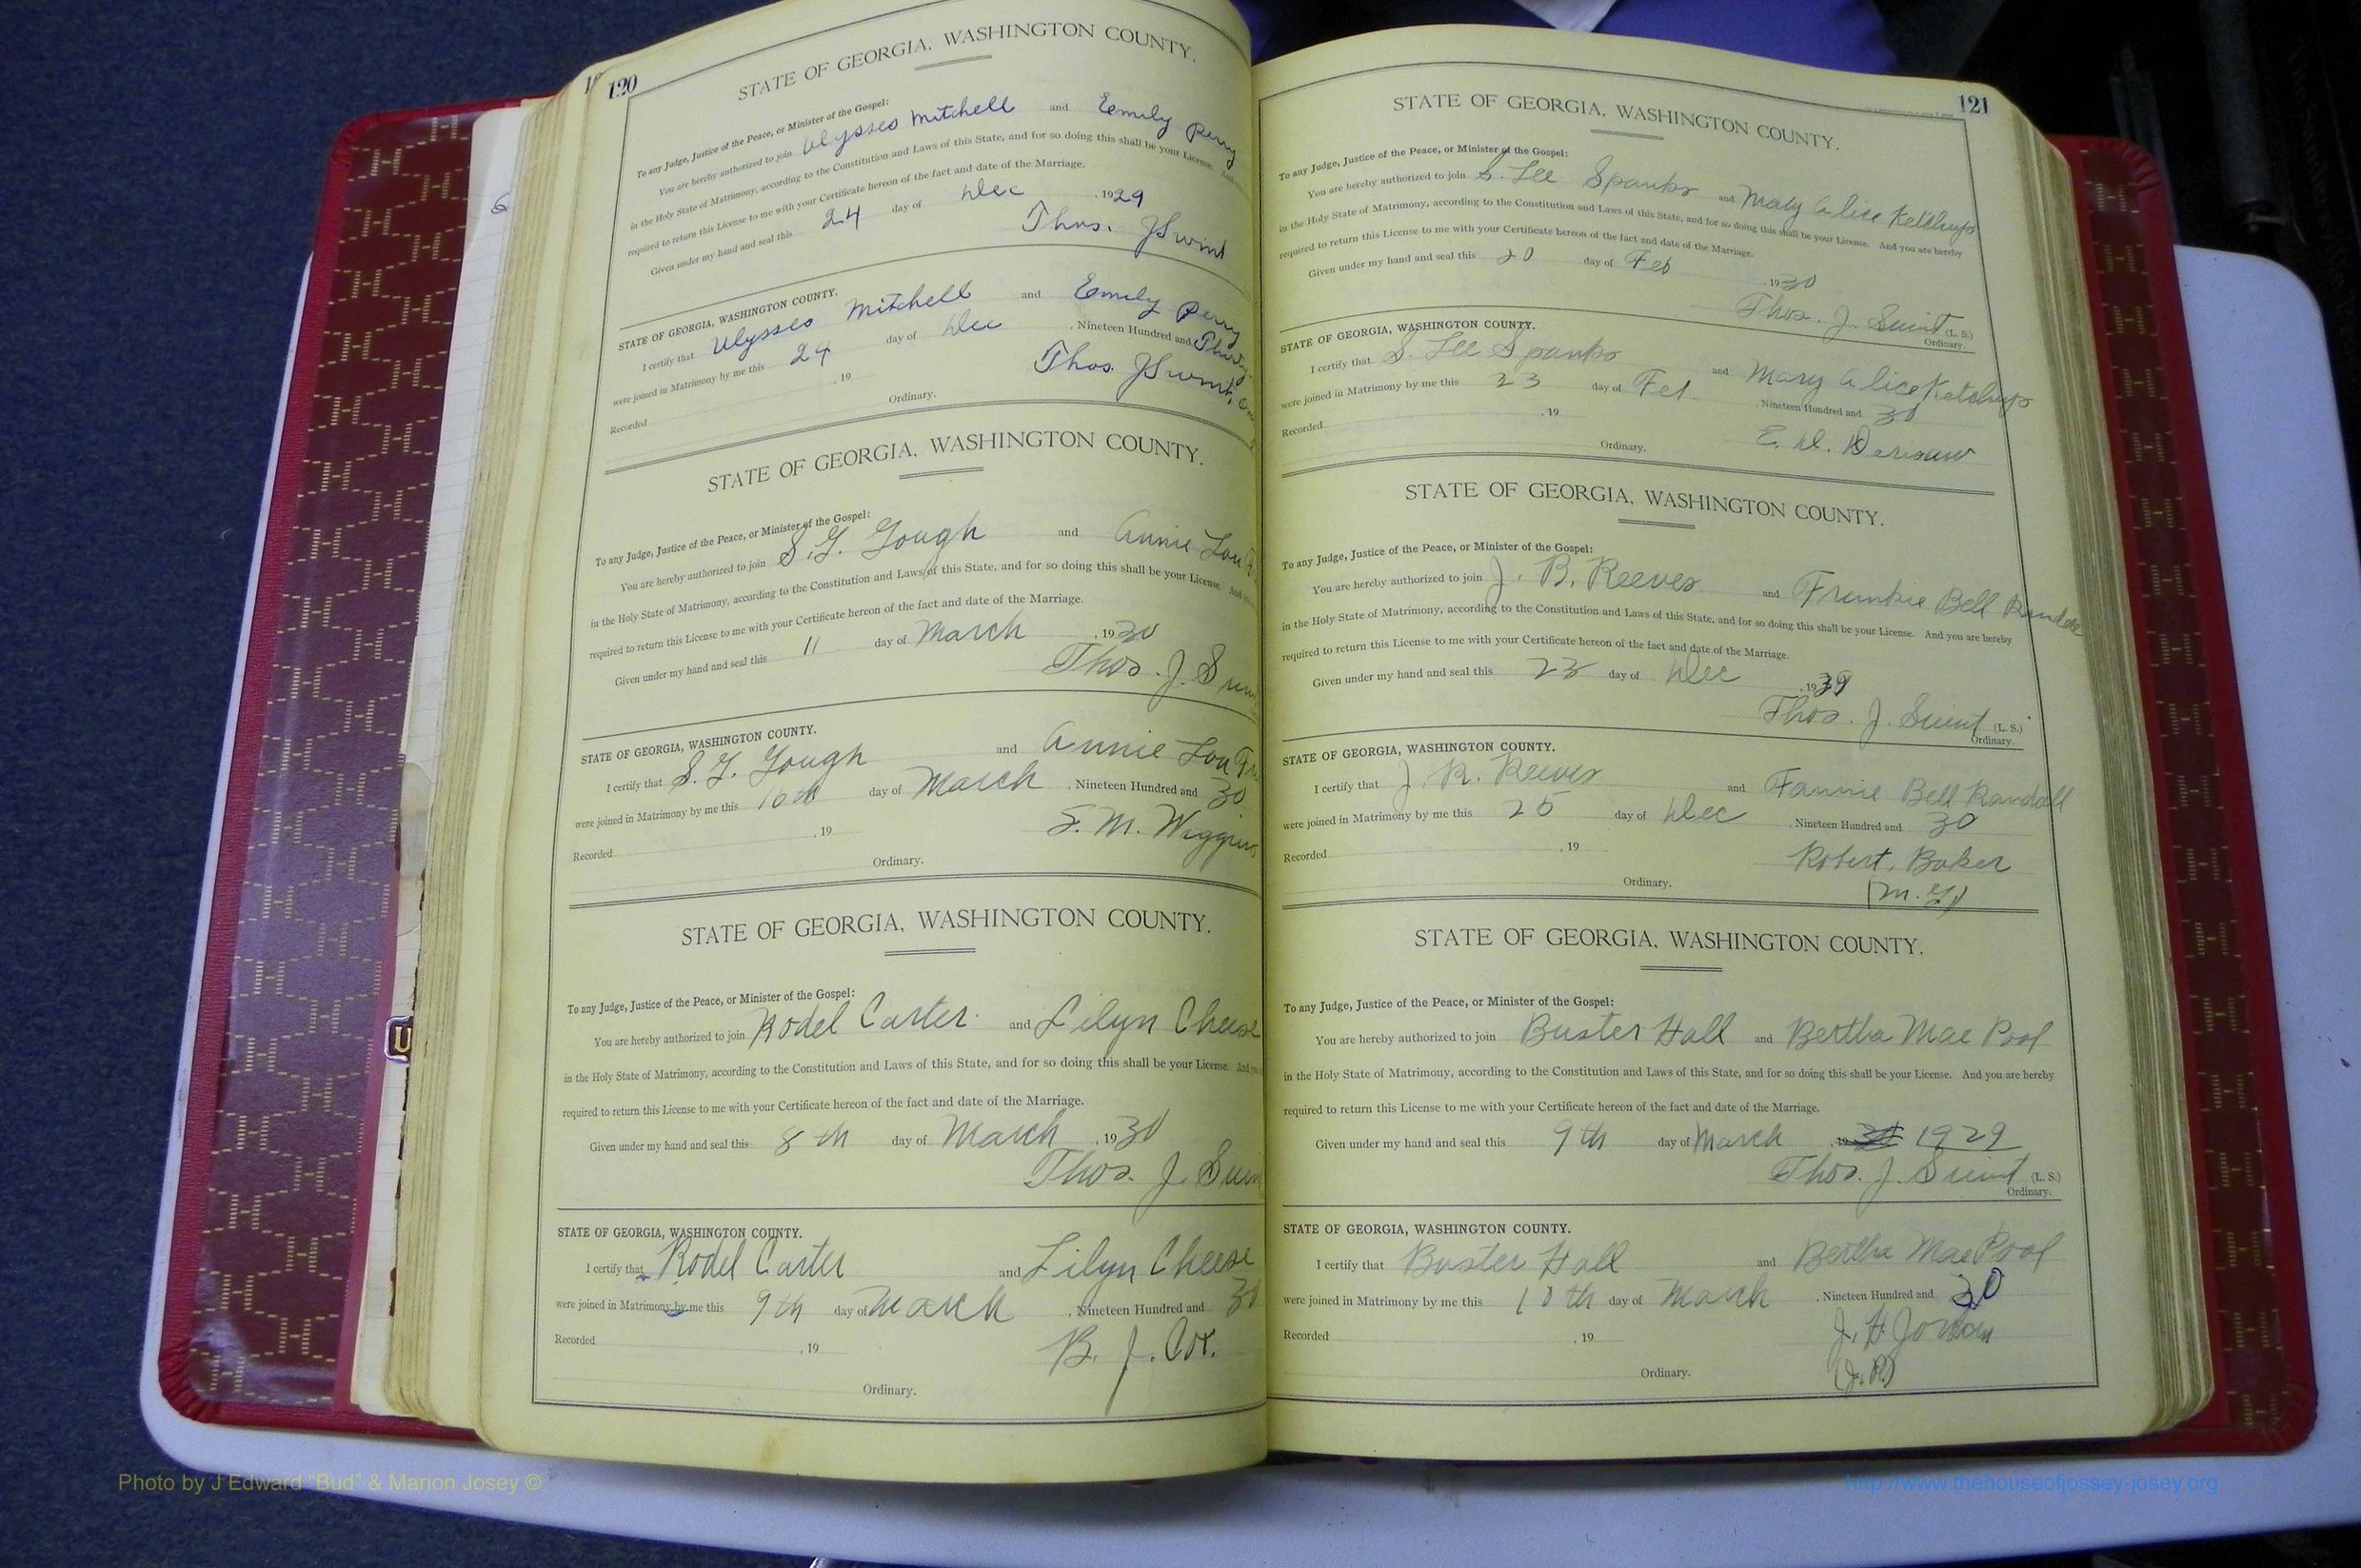 120
STATE OF GEORGIA, WASHINGTON COUNTY.
To any Judge, Justice of the Peace, or Minister of the Gospel:
You are hereby authorized to join Ulysses Mitchell and Emily Perry
in the Holy State of Matrimony, according to the Constitution and Laws of this State, and for so doing this shall be your License. And
required to return this License to me with your Certificate hereon of the fact and date of the Marriage.
Given under my hand and seal this 24 day of Dec , 1929
Thos. J Swint
STATE OF GEORGIA, WASHINGTON COUNTY.
I certify that Ulysses Mitchell and Emily Perry
were joined in Matrimony by me this 24 day of Dec , Nineteen Hundred and
Recorded , 19 Thos. J Swint,
Ordinary.
STATE OF GEORGIA, WASHINGTON COUNTY.
To any Judge, Justice of the Peace, or Minister of the Gospel:
You are hereby authorized to join S. G. Gough and Annie Lou
in the Holy State of Matrimony, according to the Constitution and Laws of this State, and for so doing this shall be your License. And
required to return this License to me with your Certificate hereon of the fact and date of the Marriage.
Given under my hand and seal this 11 day of March , 1930
Thos. J. Swin
STATE OF GEORGIA, WASHINGTON COUNTY.
I certify that S. G. Gough and Annie Lou
were joined in Matrimony by me this 16th day of March , Nineteen Hundred and 30
Recorded , 19 S. M. Wiggins
Ordinary.
STATE OF GEORGIA, WASHINGTON COUNTY.
To any Judge, Justice of the Peace, or Minister of the Gospel:
You are hereby authorized to join Rodel Carter and Lilyn Cheese
in the Holy State of Matrimony, according to the Constitution and Laws of this State, and for so doing this shall be your License. And
required to return this License to me with your Certificate hereon of the fact and date of the Marriage.
Given under my hand and seal this 8th day of March , 1930
Thos. J. Swin
STATE OF GEORGIA, WASHINGTON COUNTY.
I certify that Rodel Carter and Lilyn Cheese
were joined in Matrimony by me this 9th day of March , Nineteen Hundred and 30
Recorded , 19 B. J. Cox.
Ordinary.
121
STATE OF GEORGIA, WASHINGTON COUNTY.
To any Judge, Justice of the Peace, or Minister of the Gospel:
You are hereby authorized to join S. Lee Spanks and Mary Alice Ketchups
in the Holy State of Matrimony, according to the Constitution and Laws of this State, and for so doing this shall be your License. And you are hereby
required to return this License to me with your Certificate hereon of the fact and date of the Marriage.
Given under my hand and seal this 20 day of Feb , 1930
Thos. J. Swint (L. S.)
Ordinary.
STATE OF GEORGIA, WASHINGTON COUNTY.
I certify that S. Lee Spanks and Mary Alice Ketchups
were joined in Matrimony by me this 23 day of Feb , Nineteen Hundred and 30
Recorded , 19 E. D.
Ordinary.
STATE OF GEORGIA, WASHINGTON COUNTY.
To any Judge, Justice of the Peace, or Minister of the Gospel:
You are hereby authorized to join J. B. Reeves and Frankie Bell
in the Holy State of Matrimony, according to the Constitution and Laws of this State, and for so doing this shall be your License. And you are hereby
required to return this License to me with your Certificate hereon of the fact and date of the Marriage.
Given under my hand and seal this 23 day of Dec , 19
Thos. J. Swint (L. S.)
Ordinary.
STATE OF GEORGIA, WASHINGTON COUNTY.
I certify that J. R. Reeves and Fannie Bell Randall
were joined in Matrimony by me this 25 day of Dec , Nineteen Hundred and 30
Recorded , 19 Robert. Baker
Ordinary. (M. G.)
STATE OF GEORGIA, WASHINGTON COUNTY.
To any Judge, Justice of the Peace, or Minister of the Gospel:
You are hereby authorized to join Buster Hall and Bertha Mae Pool
in the Holy State of Matrimony, according to the Constitution and Laws of this State, and for so doing this shall be your License. And you are hereby
required to return this License to me with your Certificate hereon of the fact and date of the Marriage.
Given under my hand and seal this 9th day of March 1929
Thos. J. Swint (L. S.)
Ordinary.
STATE OF GEORGIA, WASHINGTON COUNTY.
I certify that Buster Hall and Bertha Mae Pool
were joined in Matrimony by me this 10th day of March , Nineteen Hundred and 30
Recorded , 19 J. H Jordan
Ordinary. (J. P.)
Photo by J Edward "Bud" & Marion Josey ©
http://www.thehouseofjossey-josey.org